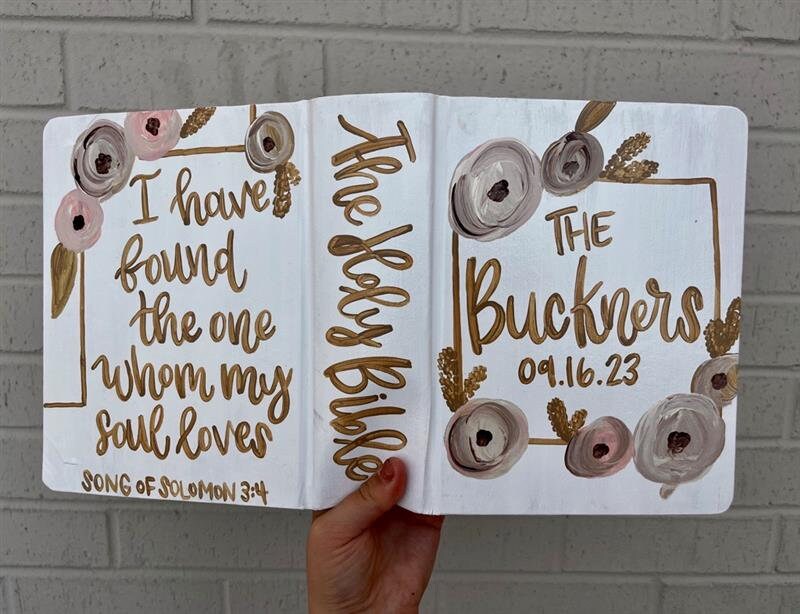 I have
found
the one
whom my
soul loves
SONG OF SOLOMON 3:4
The Holy Bible
THE
Buckners
09.16.23